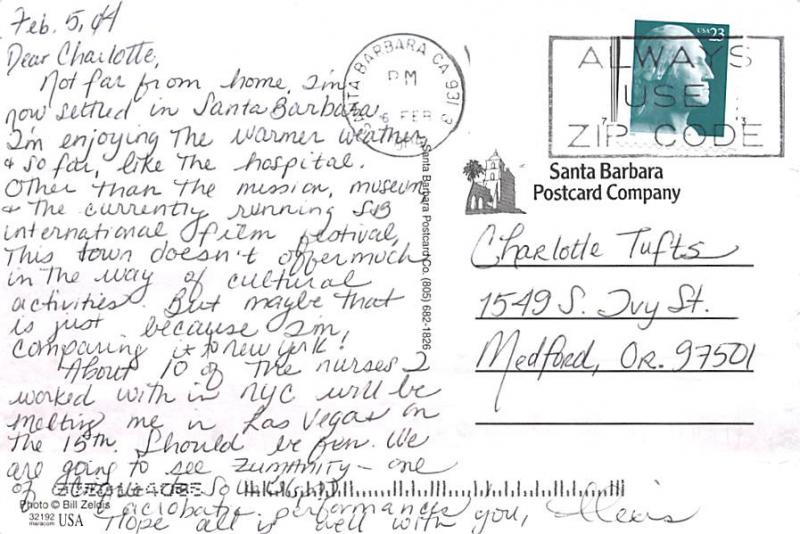 Feb. 5, 04
Dear Charlotte,
Not far from home, I'm
now settled in Santa Barbara.
I'm enjoying the warmer weather
& so far, like the hospital.
Other than the mission, museum,
& the currently running SB
international film festival,
this town doesn't offer much
in the way of cultural
activities. But maybe that
is just because I'm
comparing it to New York!
About 10 of the nurses I
worked with in NYC will be
meeting me in Las Vegas on
the 15th. Should be fun. We
are going to see ZUMANITY – one
of Cirque du Soleil's
acrobatic performances
Hope all is well with you,
Photo © Bill Zeldis
32192
maracom USA
Santa Barbara Postcard Co. (805) 682-1826
SANTA BARBARA CA 931
PM
6 FEB
USA 23
ALWAYS
USE
ZIP CODE
Santa Barbara
Postcard Company
Charlotte Tufts
1549 S. Ivy St.
Medford, Or. 97501